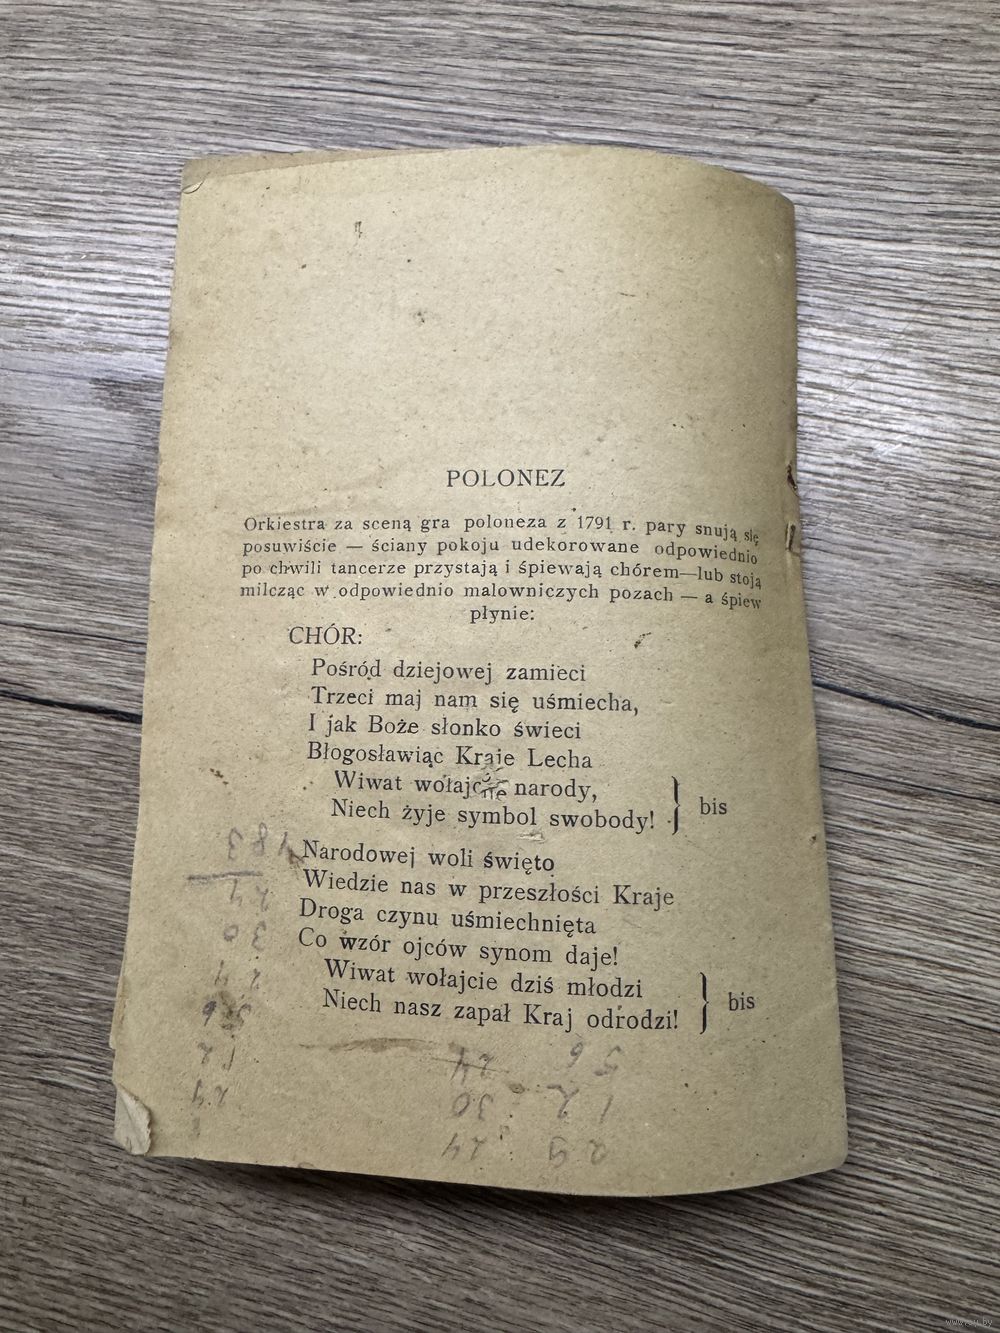 POLONEZ
Orkiestra za sceną gra poloneza z 1791 r. pary snują się
posuwiście — ściany pokoju udekorowane odpowiednio
po chwili tancerze przystają i śpiewają chórem—lub stoją
milcząc w odpowiednio malowniczych pozach — a śpiew
płynie:
CHÓR:
Pośród dziejowej zamieci
Trzeci maj nam się uśmiecha,
I jak Boże słonko świeci
Błogosławiąc Kraje Lecha
Wiwat wołajcie narody,
Niech żyje symbol swobody! } bis
Narodowej woli święto
Wiedzie nas w przeszłości Kraje
Droga czynu uśmiechnięta
Co wzór ojców synom daje!
Wiwat wołajcie dziś młodzi
Niech nasz zapał Kraj odrodzi! } bis
29 24
12 30
56 24
24
12
56
24
30
183